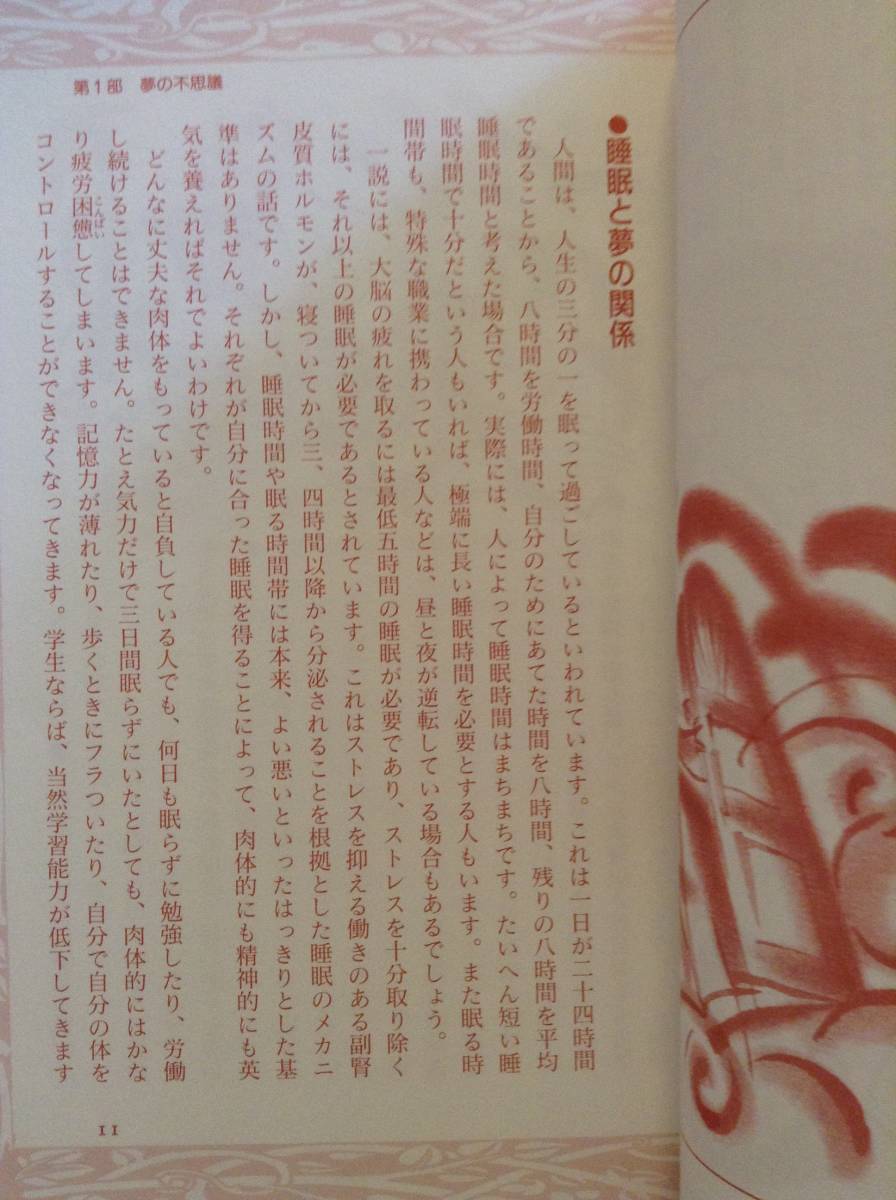 第1部　夢の不思議
●睡眠と夢の関係
　人間は、人生の三分の一を眠って過ごしているといわれています。これは一日が二十四時間
であることから、八時間を労働時間、自分のためにあてた時間を八時間、残りの八時間を平均
睡眠時間と考えた場合です。実際には、人によって睡眠時間はまちまちです。たいへん短い睡
眠時間で十分だという人もいれば、極端に長い睡眠時間を必要とする人もいます。また眠る時
間帯も、特殊な職業に携わっている人などは、昼と夜が逆転している場合もあるでしょう。
　一説には、大脳の疲れを取るには最低五時間の睡眠が必要であり、ストレスを十分取り除く
には、それ以上の睡眠が必要であるとされています。これはストレスを抑える働きのある副腎
皮質ホルモンが、寝ついてから三、四時間以降から分泌されることを根拠とした睡眠のメカニ
ズムの話です。しかし、睡眠時間や眠る時間帯には本来、よい悪いといったはっきりとした基
準はありません。それぞれが自分に合った睡眠を得ることによって、肉体的にも精神的にも英
気を養えればそれでよいわけです。
　どんなに丈夫な肉体をもっていると自負している人でも、何日も眠らずに勉強したり、労働
し続けることはできません。たとえ気力だけで三日間眠らずにいたとしても、肉体的にはかな
り疲労困憊してしまいます。記憶力が薄れたり、歩くときにフラついたり、自分で自分の体を
こんぱい
コントロールすることができなくなってきます。学生ならば、当然学習能力が低下してきます
11